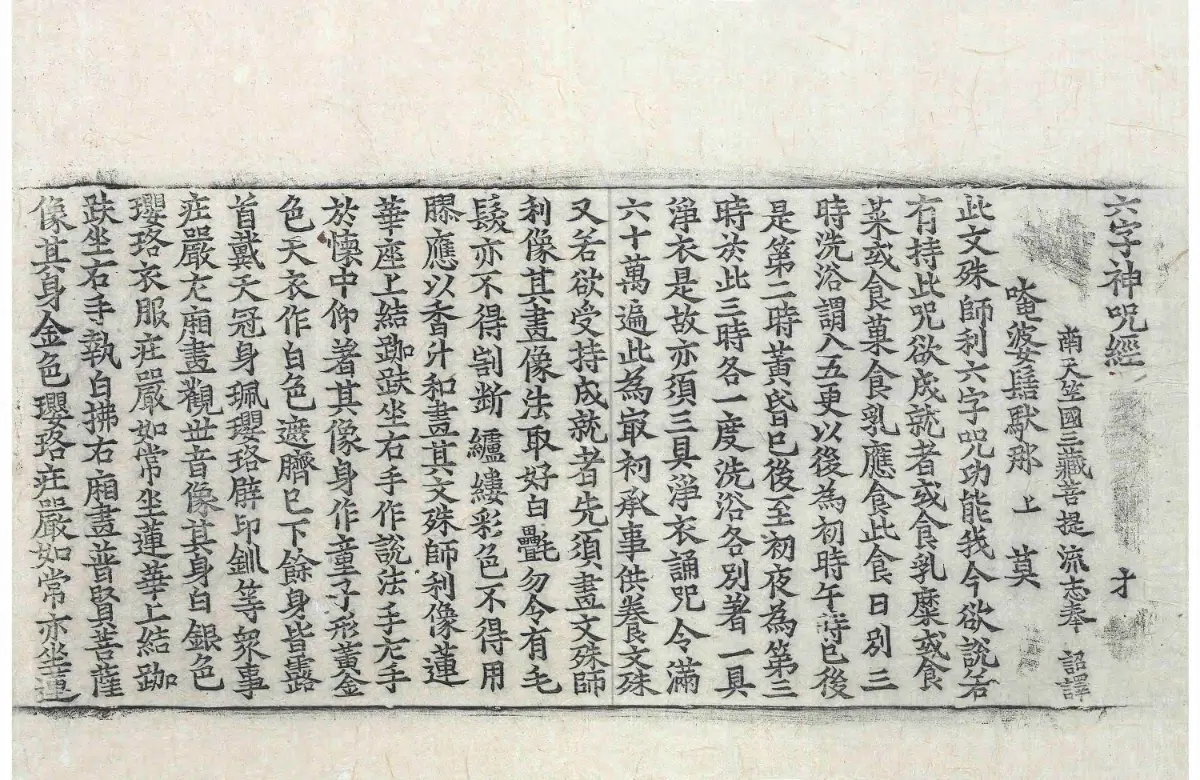 六字神呪經 才
南天竺國三藏菩提流志奉 詔譯
唵婆髻馱那 上 莫
此文殊師利六字呪功能我今欲說若
有持此呪欲成就者或食乳糜或食
菜或食菓食乳應食此食日別三
時洗浴謂入五更以後為初時午時已後
是第二時黃昏已後至初夜為第三
時於此三時各一度洗浴各別著一具
淨衣是故亦須三具淨衣誦呪令滿
六十萬遍此為冣初承事供養文殊
又若欲受持成就者先須畫文殊師
利像其畫像法取好白㲲勿令有毛
髮亦不得割斷纑縷彩色不得用
膠應以香汁和畫其文殊師利像蓮
華座上結跏趺坐右手作說法手左手
於懷中仰著其像身作童子形黃金
色天衣作白色遮臍已下餘身皆露
首戴天冠身珮瓔珞臂印釧等衆事
莊嚴左廂畫觀世音像其身白銀色
瓔珞衣服莊嚴如常坐蓮華上結跏
趺坐右手執白拂右廂畫普賢菩薩
像其身金色瓔珞莊嚴如常亦坐蓮